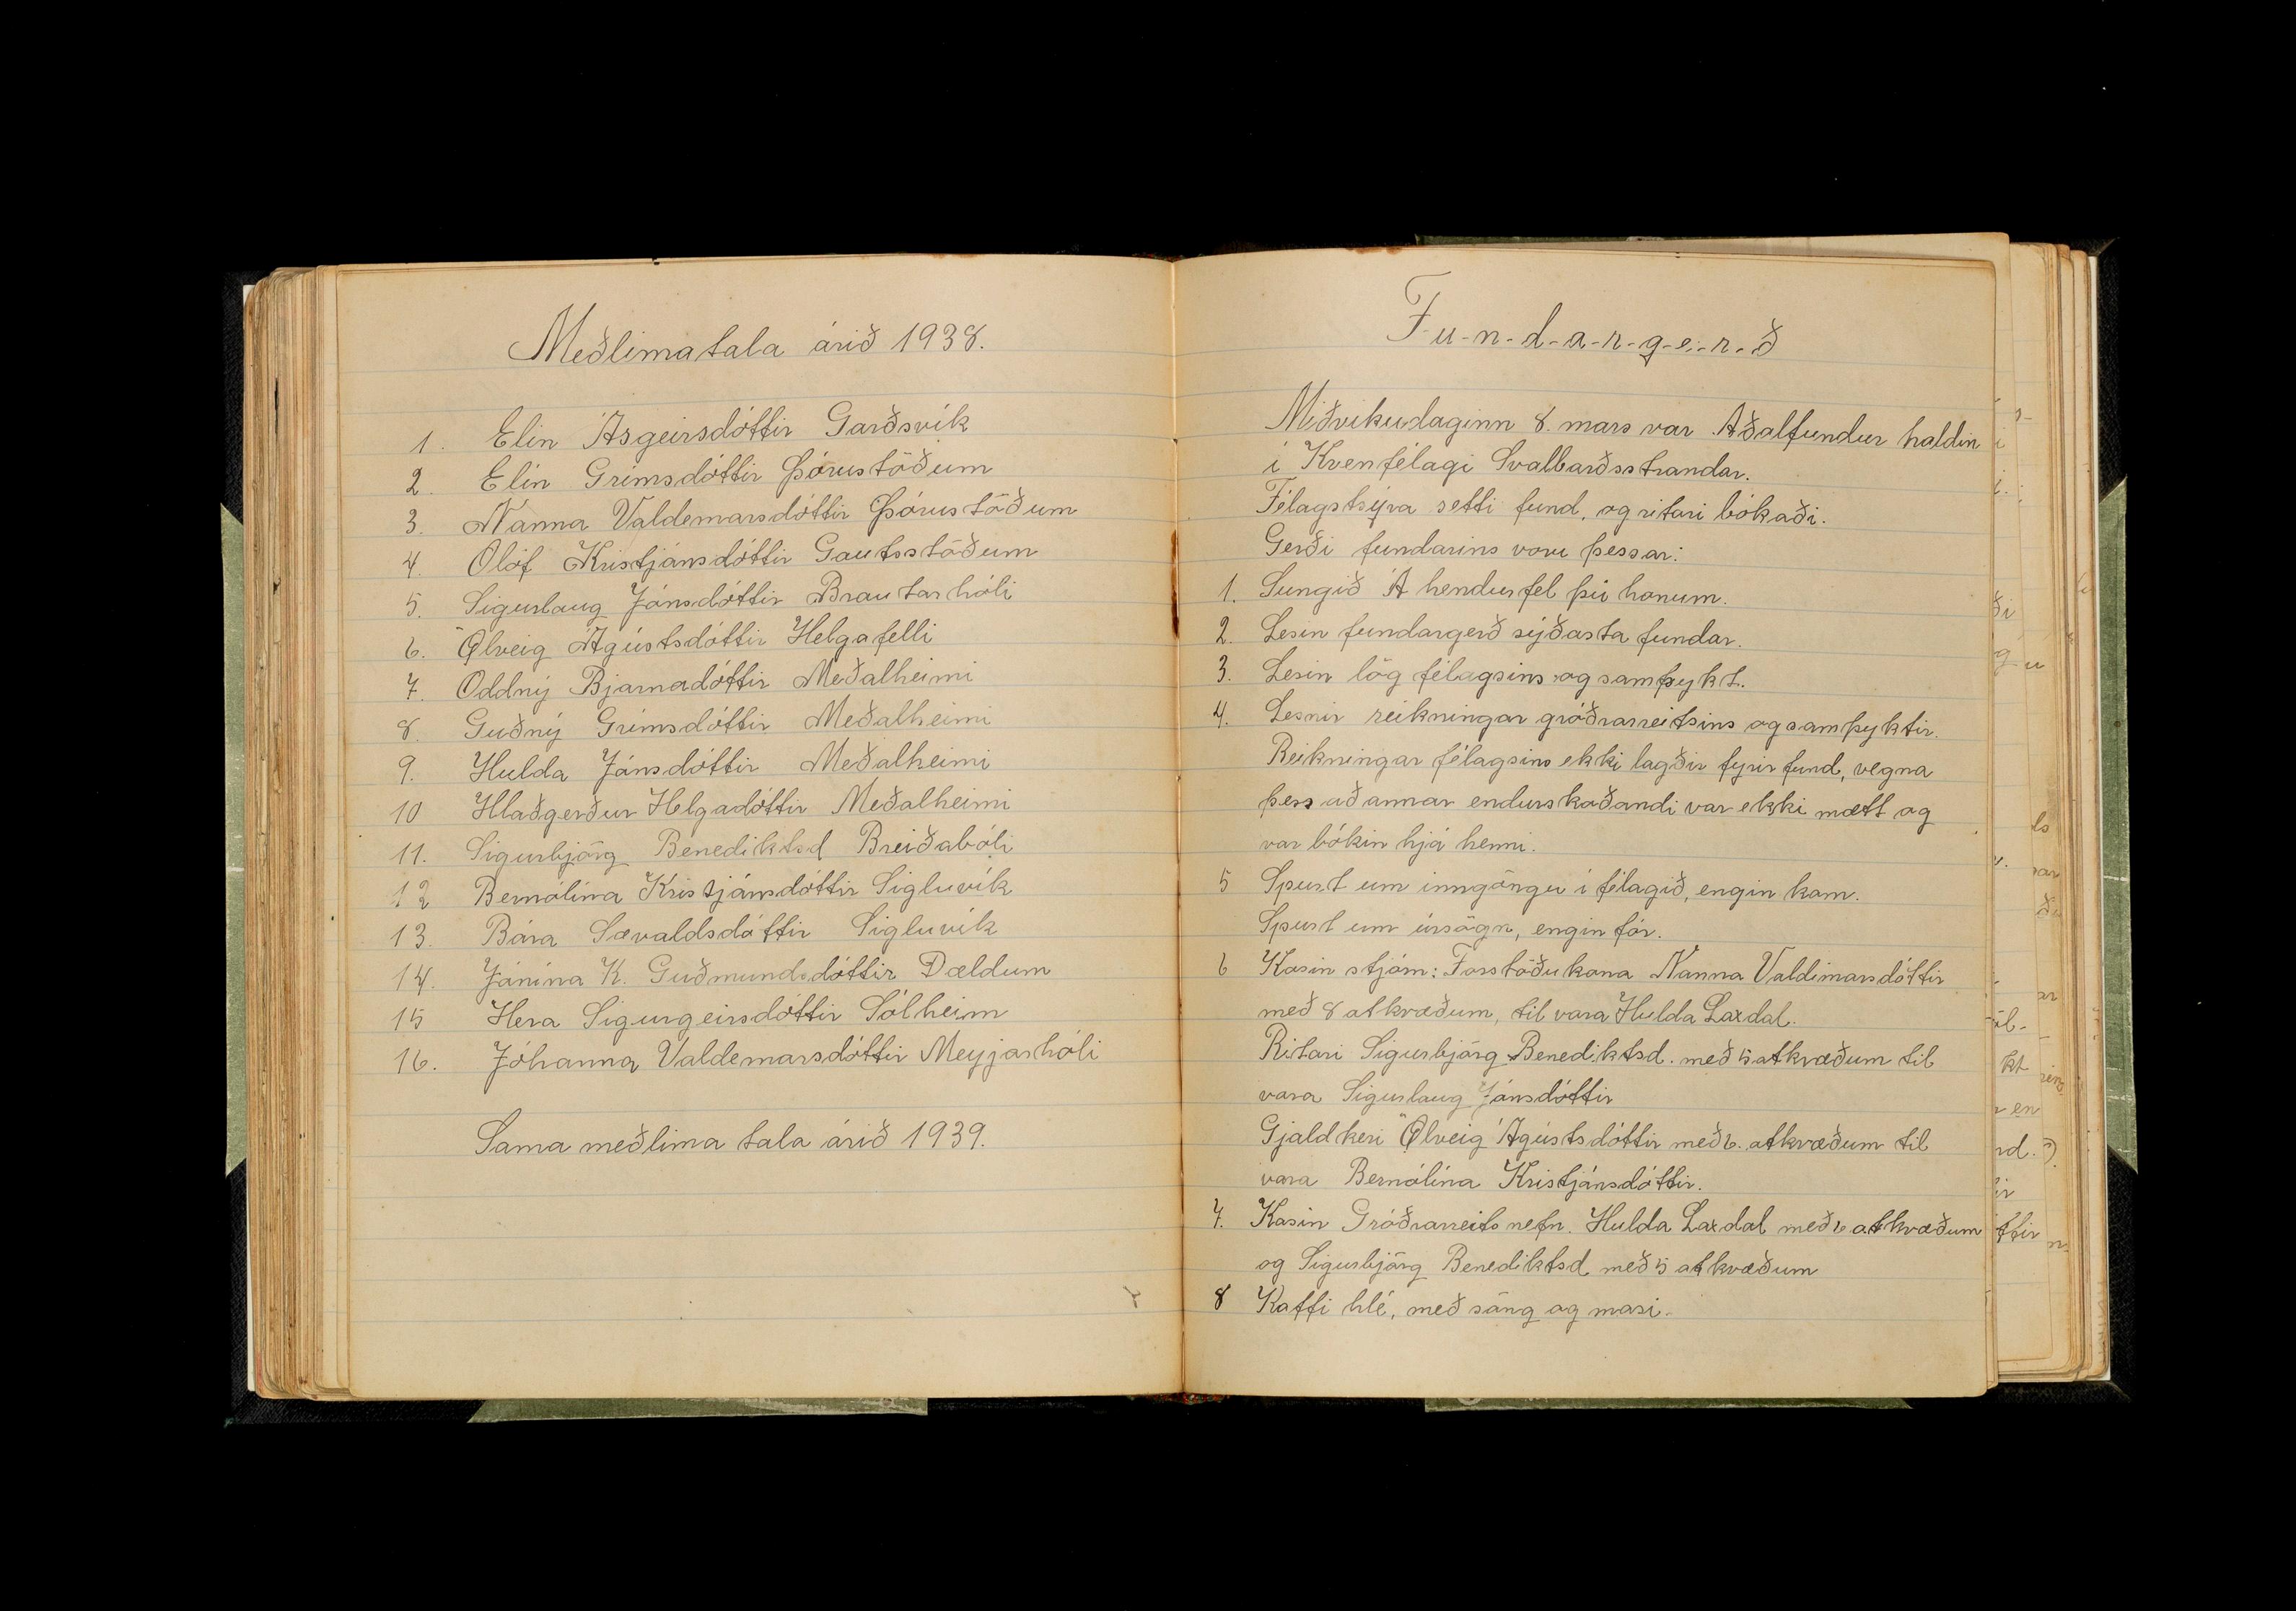 Meðlimatala árið 1938.
1. Elin Ásgeirsdóttir Garðsvík
2. Elín Grímsdóttir Þórustöðum
3. Nanna Valdemarsdóttir Þórustöðum
4. Ólöf Kristjánsdóttir Gautsstöðum
5. Sigurlaug Jónsdóttir Brautarhóli
6. Ölveig Ágústsdóttir Helgafelli
7. Oddný Bjarnadóttir Meðalheimi
8. Guðný Grímsdóttir Meðalheimi
9. Hulda Jónsdóttir Meðalheimi
10 Hlaðgerður Helgadóttir Meðalheimi
11. Sigurbjörg Benediktsd Breiðabóli
12 Bernólína Kristjánsdóttir Sigluvík
13. Bára Sævaldsdóttir Sigluvík
14. Jónína K. Guðmundsdóttir Dældum
15 Hera Sigurgeirsdóttir Sólheim
16. Jóhanna Valdemarsdóttir Meyjarhóli
Sama meðlima tala árið 1939.
F-u-n-d-a-r-g-e-r-ð
Miðvikudaginn 8. mars var Aðalfundur haldin
í Kvenfélagi Svalbarðsstrandar.
Félagstsýra setti fund, og ritari bókaði.
Gerði fundarins voru þessar:
1. Sungið Á hendur fel þú honum.
2. Lesin fundargerð sýðasta fundar.
3. Lesin lög félagsins og samþykt.
4. Lesnir reikningar gróðrarreitsins og samþyktir.
Reikningar félagsins ekki lagðir fyrir fund, vegna
þess að annar endurskoðandi var ekki mætt og
var bókin hjá henni.
5 Spurt um inngöngu í félagið, engin kom.
Spurt um úrsögn, engin fór.
6 Kosin stjórn: Forstöðukona Nanna Valdimarsdóttir
með 8 atkvæðum, til vara Hulda Laxdal.
Ritari Sigurbjörg Benediktsd. með 5 atkvæðum til
vara Sigurlaug Jónsdóttir
Gjaldkeri Ölveig Ágústsdóttir með 6. atkvæðum til
vara Bernólína Kristjánsdóttir.
7. Kosin Gróðrarreits nefn. Hulda Laxdal með 6 atkvæðum
og Sigurbjörg Benediktsd með 5 atkvæðum
8 Kaffi hlé, með söng og masi.